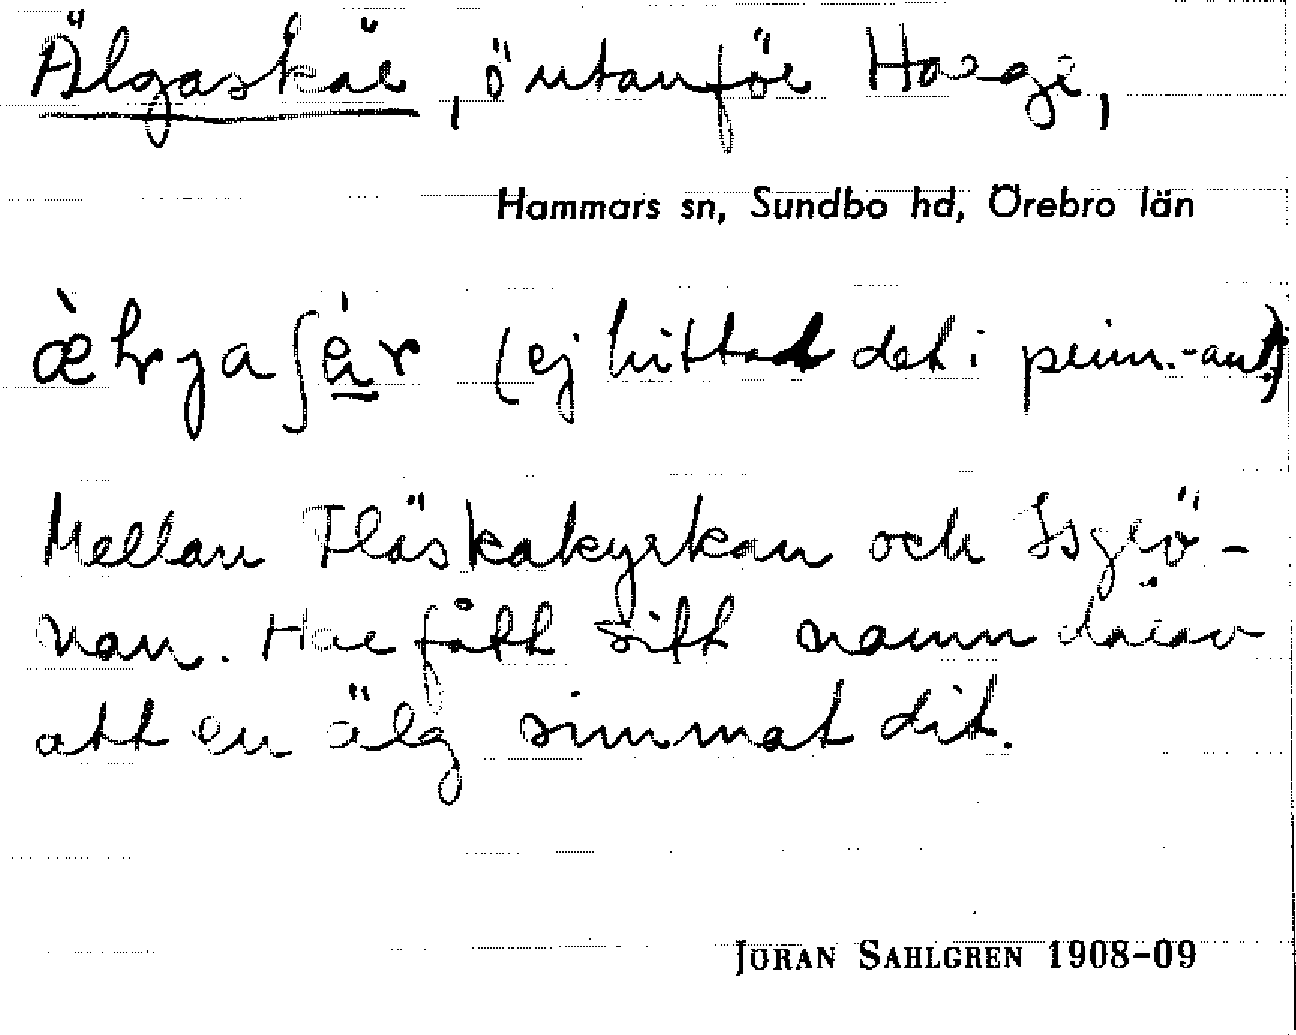 Älgaskär, ö utanför Harge,
Hammars sn, Sundbo hd, Örebro län
(ej hittat det i prim.-ant.)
Mellan Fläskakyrkan och Isgrö-
nan. Har fått sitt namn därav
att en älg simmat dit.
JÖRAN SAHLGREN 1908-09